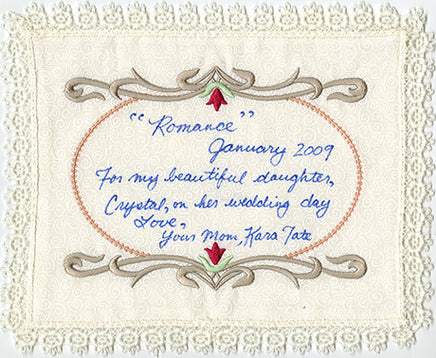 "Romance"
January 2009
For my beautiful daughter,
Crystal, on her wedding day
Love,
Your Mom, Kara Tate